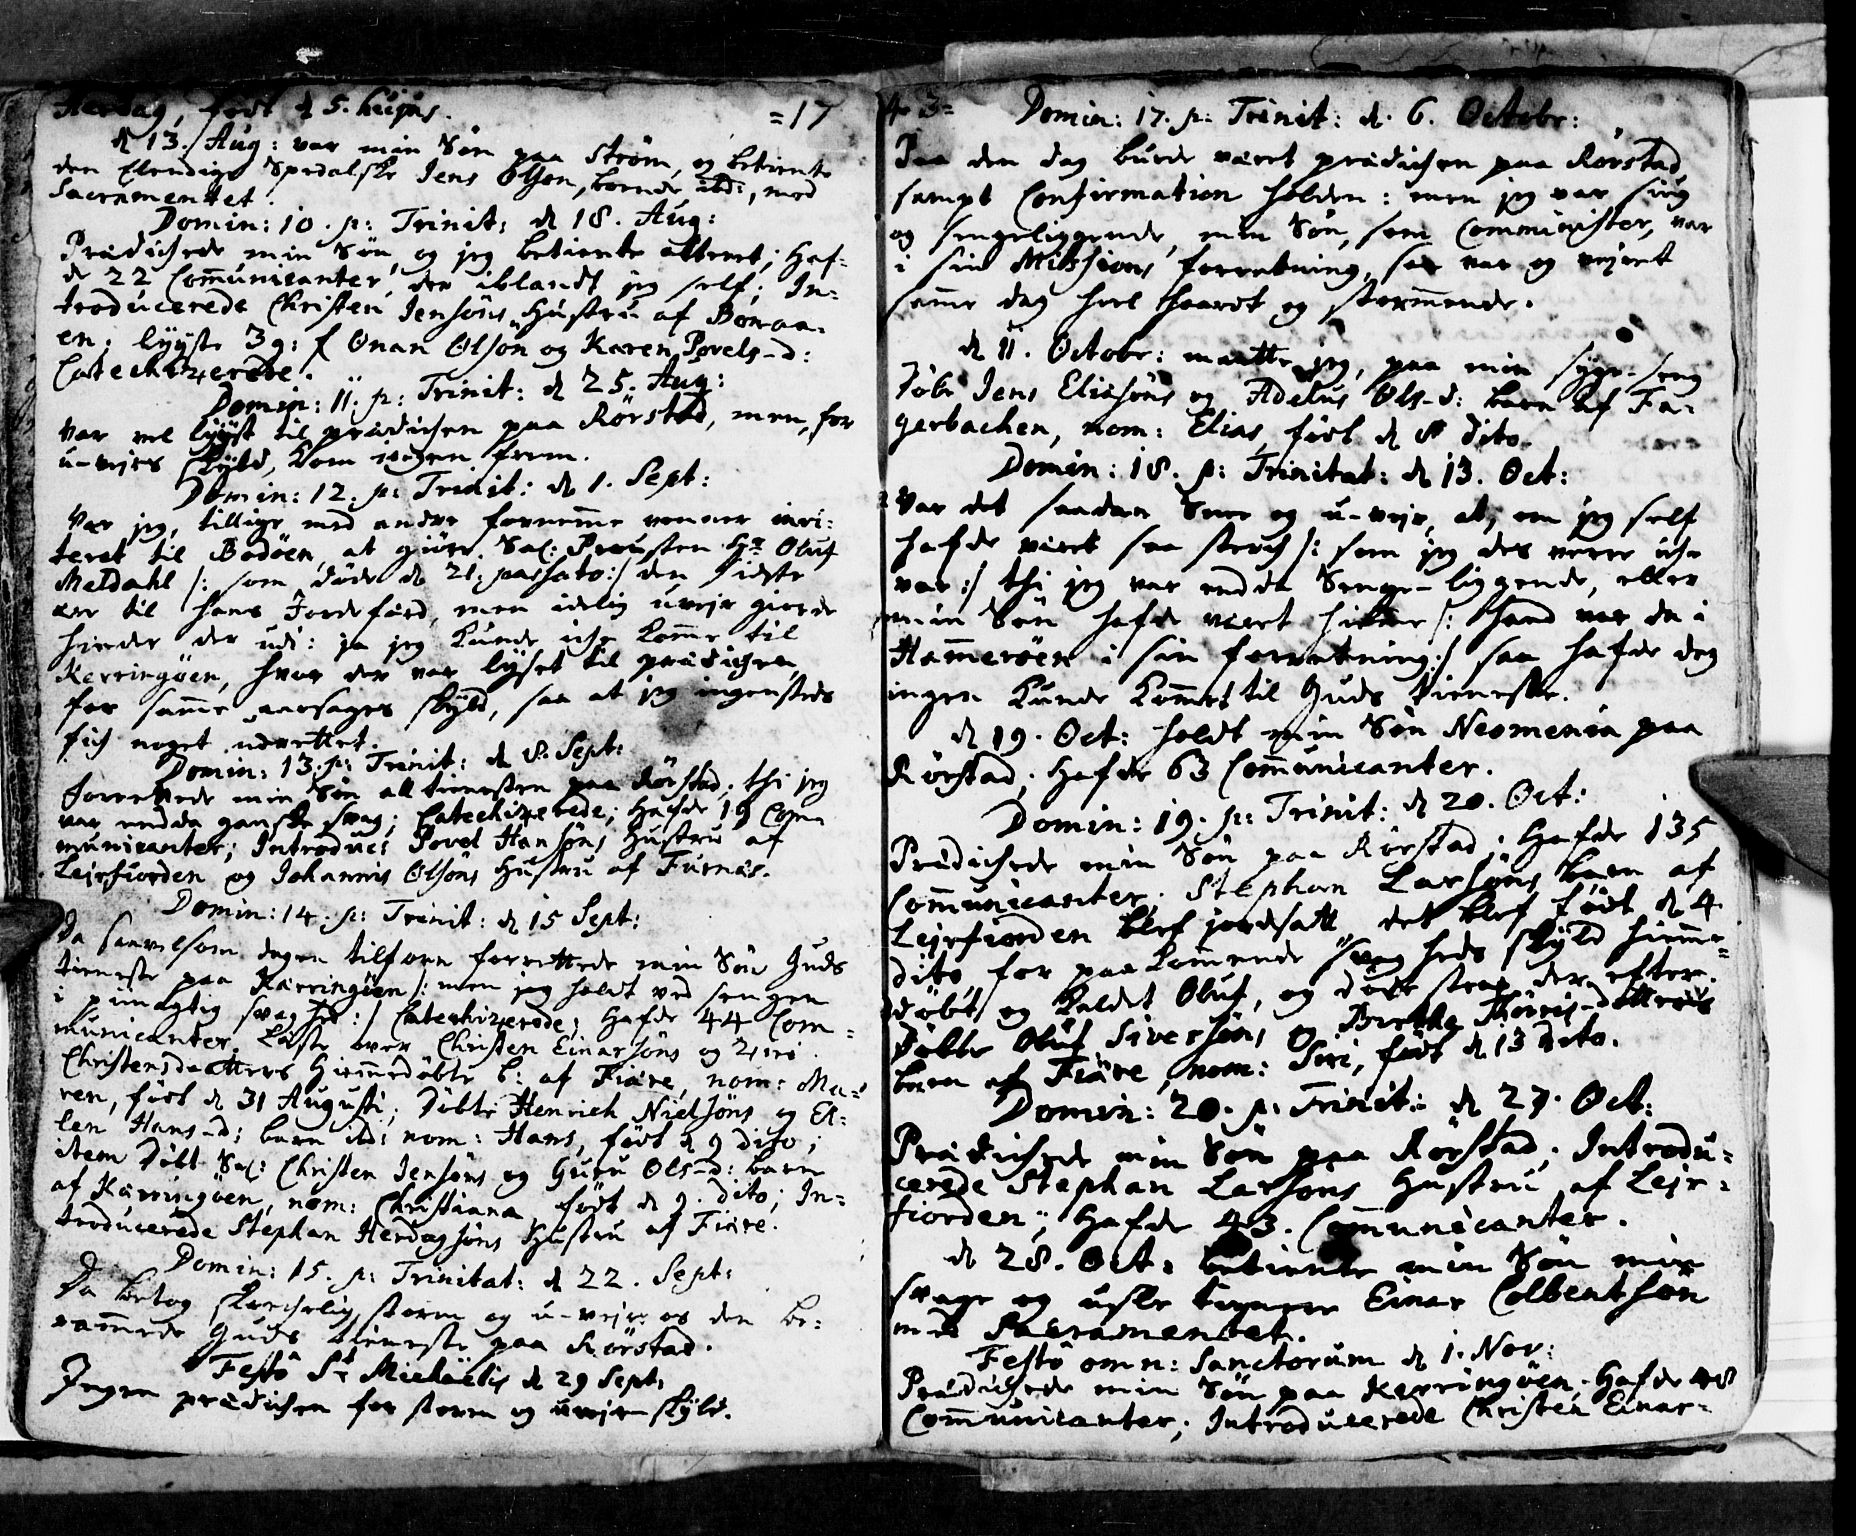 Herdag, født d 5. hujus.
=17
d 13. Aug: var min Søn paa Strøm, og betiente
den Elendige Spedalske Jens Olsøn, boende ibd:, med
Sacramentet.
Domin: 10. p: Trinit: d 18. Aug:
Prædichede min Søn, og jeg betiente alteret; Haf-
de 22 Communicanter, der iblandt jeg self; In-
troducerede Christen Jensøns Hustru af
en; lyyste 3 g: f Onan Olsøn og Karen Povels-d:
Catechizerede.
Domin: 11. p: Trinit: d 25. Aug:
var vel lyyst til prædichen paa Rørstad, men, for
u-vejrs skyld, kom ingen frem.
Domin: 12. p: Trinit: d 1. Sept:
Var jeg, tillige med andre fornemme venner invi-
teret til Bodøen, at giøre Sal: Provsten Hr Oluf
Meldahl /: som døde d 21. passato :/ den sidste
ære til hans Jordefærd, men idelig uvejr giorde
hinder der udi: ja jeg kunde iche komme til
Kerringøen, hvor der var lyset til prædichen,
for samme aarsages skyld, saa at jeg ingensteds
fich noget udrettet.
Domin: 13. p: Trinit: d 8. Sept:
Forrettede min Søn all tienesten paa Rørstad; thi jeg
var endda ganske svag; Catechizerede; Hafde 19 Com
municanter; Introduc: Povel Hansøns Hustru af
Lejrfiorden og Johannis Olsøns Hustru af Furnæs.
Domin: 14. p: Trinit: d 15 Sept:
Da saavelsom dagen tilforn forrettede min Søn Guds
tieneste paa Kærringøen /: men jeg holdt ved sengen
i svaghed :/ Catechizerede; Hafde 44 Com-
municanter. Læste over Christen Einarsøns og Ziri
Christensdatters Hiemmedøbte b: af Fiære, nom: Ma-
ren, født d 31 Augusti; Døbte Henrich Nielsøns og El-
len Hans-d: barn ibd: nom: Hans, født d 9 dito;
item døbt Sal: Christen Jensøns og Guru Ols-d: barn
af Kærringøen, nom: Christiana født d 9. dito; In-
troducerede Stephan Herdagsøns Hustru af Fiære.
Domin: 15. p: Trinitat: d 22. Sept:
Da betog skrechelig storm og u-vejr os den be-
rammede Guds tieneste paa Rørstad.
Festo St Michaelis d 29 Sept:
Ingen prædichen for storm og uvejr-skyld.
43=
Domin: 17. p: Trinit: d. 6. Octobr:
Paa den dag burde været prædichen paa Rørstad
sampt Confirmation holden: men jeg var siug
og sengeliggende, min Søn, som Comminister, var
i sin Missions forretning, saa var og vejret
samme dag heel haardt og stormende.
d 11. Octobr: maatte jeg, paa min syge-seng
døbe Jens Eliasøns og Adelus Ols-d: barn af Fa-
gerbachen, nom: Elias, født d 8 dito.
Domin: 18. p: Trinitat: d 13. Oct:
Var det saadan Snee og u-vejr, at, om jeg self
hafde været saa sterch /: som jeg des verre iche
var :/ thi jeg var endda Senge-liggende, eller
min Søn hafde været hiemme /: Hand var da i
Hammerøen i sin forretning :/ saa hafde dog
ingen kunde kommet til Guds tieneste.
d 19. Oct: holdt min Søn Neomenia paa
Rørstad; Hafde 63 Communicanter.
Domin: 19. p: Trinit: d 20. Oct:
Prædichede min Søn paa Rørstad; Hafde 135
Communicanter; Stephan Larsøns barn af
Lejrfiorden blef jordsatt, det blef født d 4
dito, for paakommende svagheds skyld hiemme-
døbt og kaldet Oluf, og døde strax der efter.
Døbte Oluf Siversøns og Birthe Thoris-datters
barn af Fiære, nom: Siri, født d 13 dito.
Domin: 20. p. Trinit: d 27. Oct:
Prædichede min Søn paa Rørstad. Introdu-
cerede Stephan Larsøns Hustru af Lejr-
fiorden; Hafde 43. Communicanter.
d 28. Oct: betiente min Søn min
svage og usle tienere Einar Colbentsøn
med Sacramentet.
Festo omn: Sanctorum d 1. Nov:
Prædichede min Søn paa Kerringøen; Hafde 48
Communicanter; Introducerede Christen Einar-